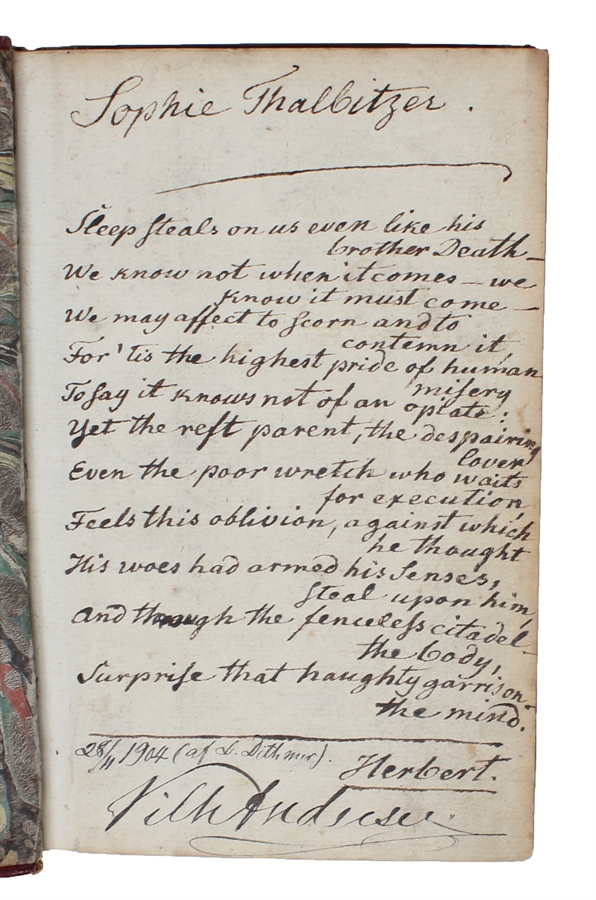 Sophie Thalbitzer.
Sleep steals on us even like his
brother Death —
We know not when it comes — we
know it must come —
We may affect to scorn and to
contemn it,
For 'tis the highest pride of human
misery
To say it knows not of an opiate:
Yet the reft parent, the despairing
lover
Even the poor wretch who waits
for execution
Feels this oblivion, against which
he thought
His woes had armed his senses,
steal upon him,
and through the fenceless citadel
the body,
Surprise that haughty garrison
the mind.
Herbert.
28/11 1904 (af L. Dithmer).
Vilh Andersen